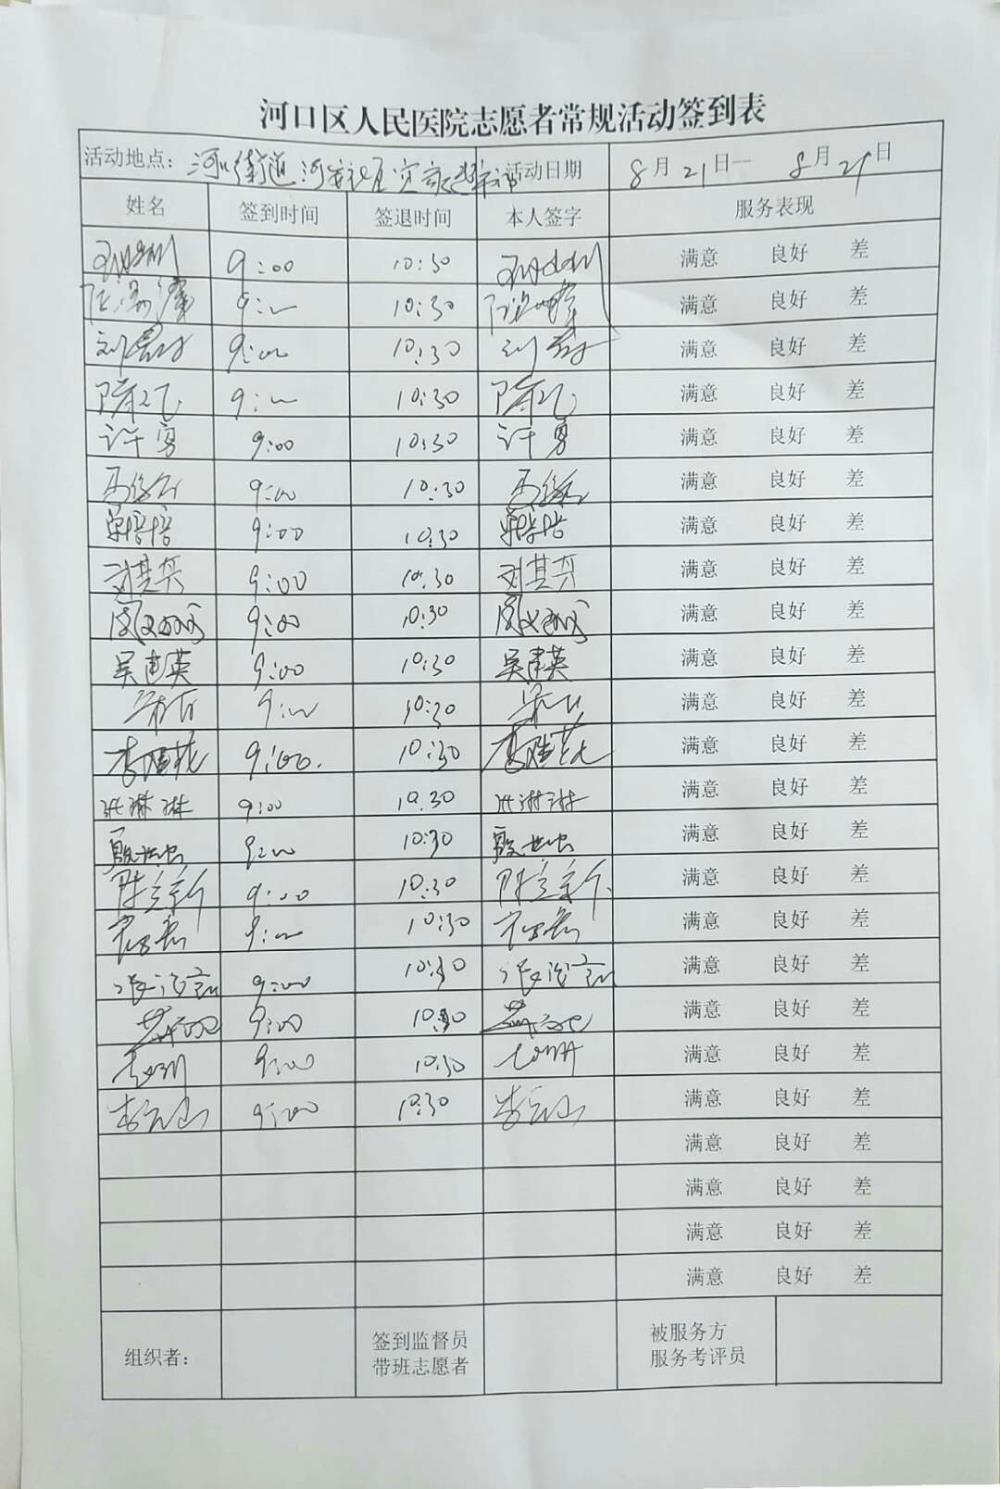 河口区人民医院志愿者常规活动签到表
活动地点： 河口街道河安社区 活动日期 8月21日— 8月21日
姓名 签到时间 签退时间 本人签字 服务表现
9:00 10:30 满意 良好 差
9:00 10:30 满意 良好 差
刘 9:00 10:30 刘 满意 良好 差
9:00 10:30 满意 良好 差
许勇 9:00 10:30 许勇 满意 良好 差
9:00 10:30 满意 良好 差
培培 9:00 10:30 培培 满意 良好 差
刘其兵 9:00 10:30 刘其兵 满意 良好 差
9:00 10:30 满意 良好 差
吴建英 9:00 10:30 吴建英 满意 良好 差
9:00 10:30 满意 良好 差
李 9:00. 10:30 李 满意 良好 差
张琳琳 9:00 10:30 张琳琳 满意 良好 差
9:00 10:30 满意 良好 差
陈立新 9:00 10:30 陈立新 满意 良好 差
9:00 10:30 满意 良好 差
张 9:00 10:30 张 满意 良好 差
9:00 10:30 满意 良好 差
9:00 10:30 满意 良好 差
李 9:00 10:30 李 满意 良好 差
满意 良好 差
满意 良好 差
满意 良好 差
满意 良好 差
组织者： 签到监督员 被服务方
带班志愿者 服务考评员